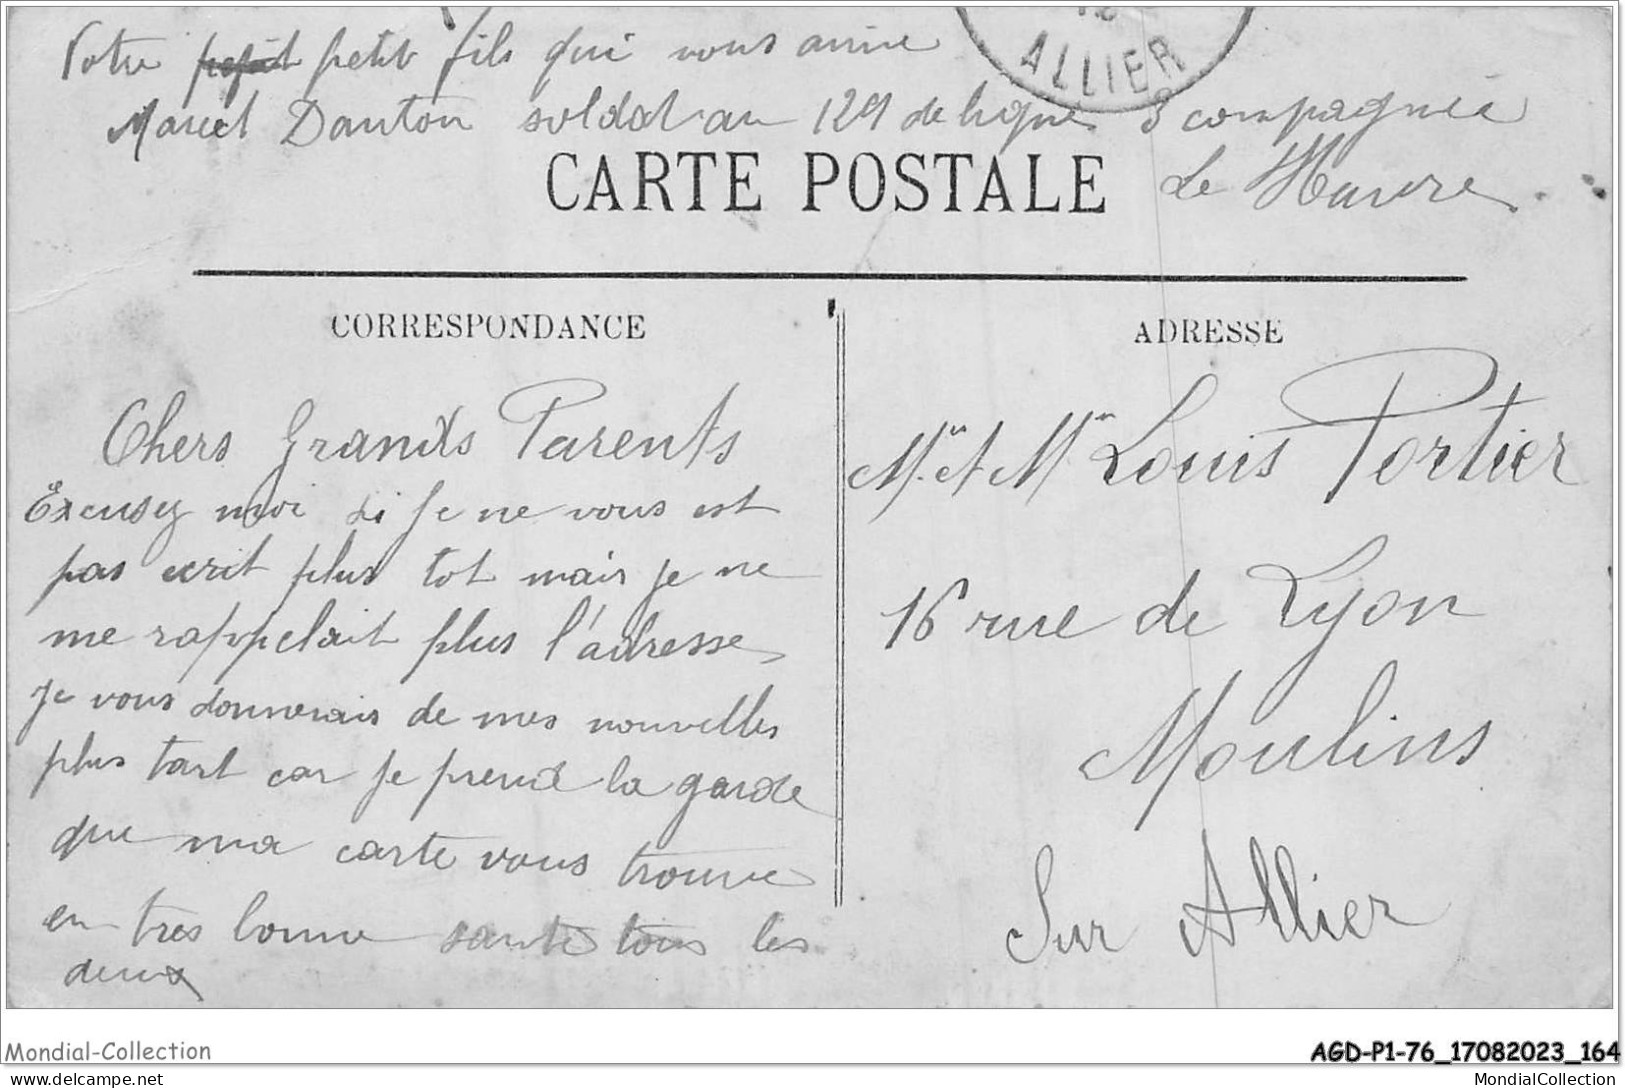 Votre petit fils qui vous aime
ALLIER
Marcel Danton soldat au 129 de ligne 3 compagnie
Le Havre
CARTE POSTALE
CORRESPONDANCE
Chers Grands Parents
Excusez moi si je ne vous est
pas ecrit plus tot mais je ne
me rappelait plus l'adresse
je vous donnerais de mes nouvelles
plus tart car je prend la garde
que ma carte vous trouve
en tres bonne santé tous les
deux
ADRESSE
Mr et Mm Louis Portier
16 rue de Lyon
Moulins
Sur Allier
Mondial-Collection
AGD-P1-76_17082023_164
delcampe.net
MondialCollection